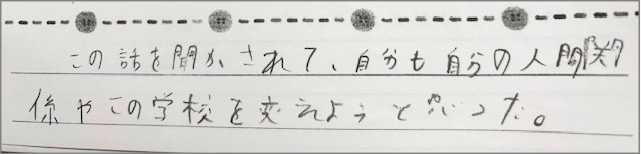 この話を聞かされて、自分も自分の人間関
係やこの学校を変えようと思った。